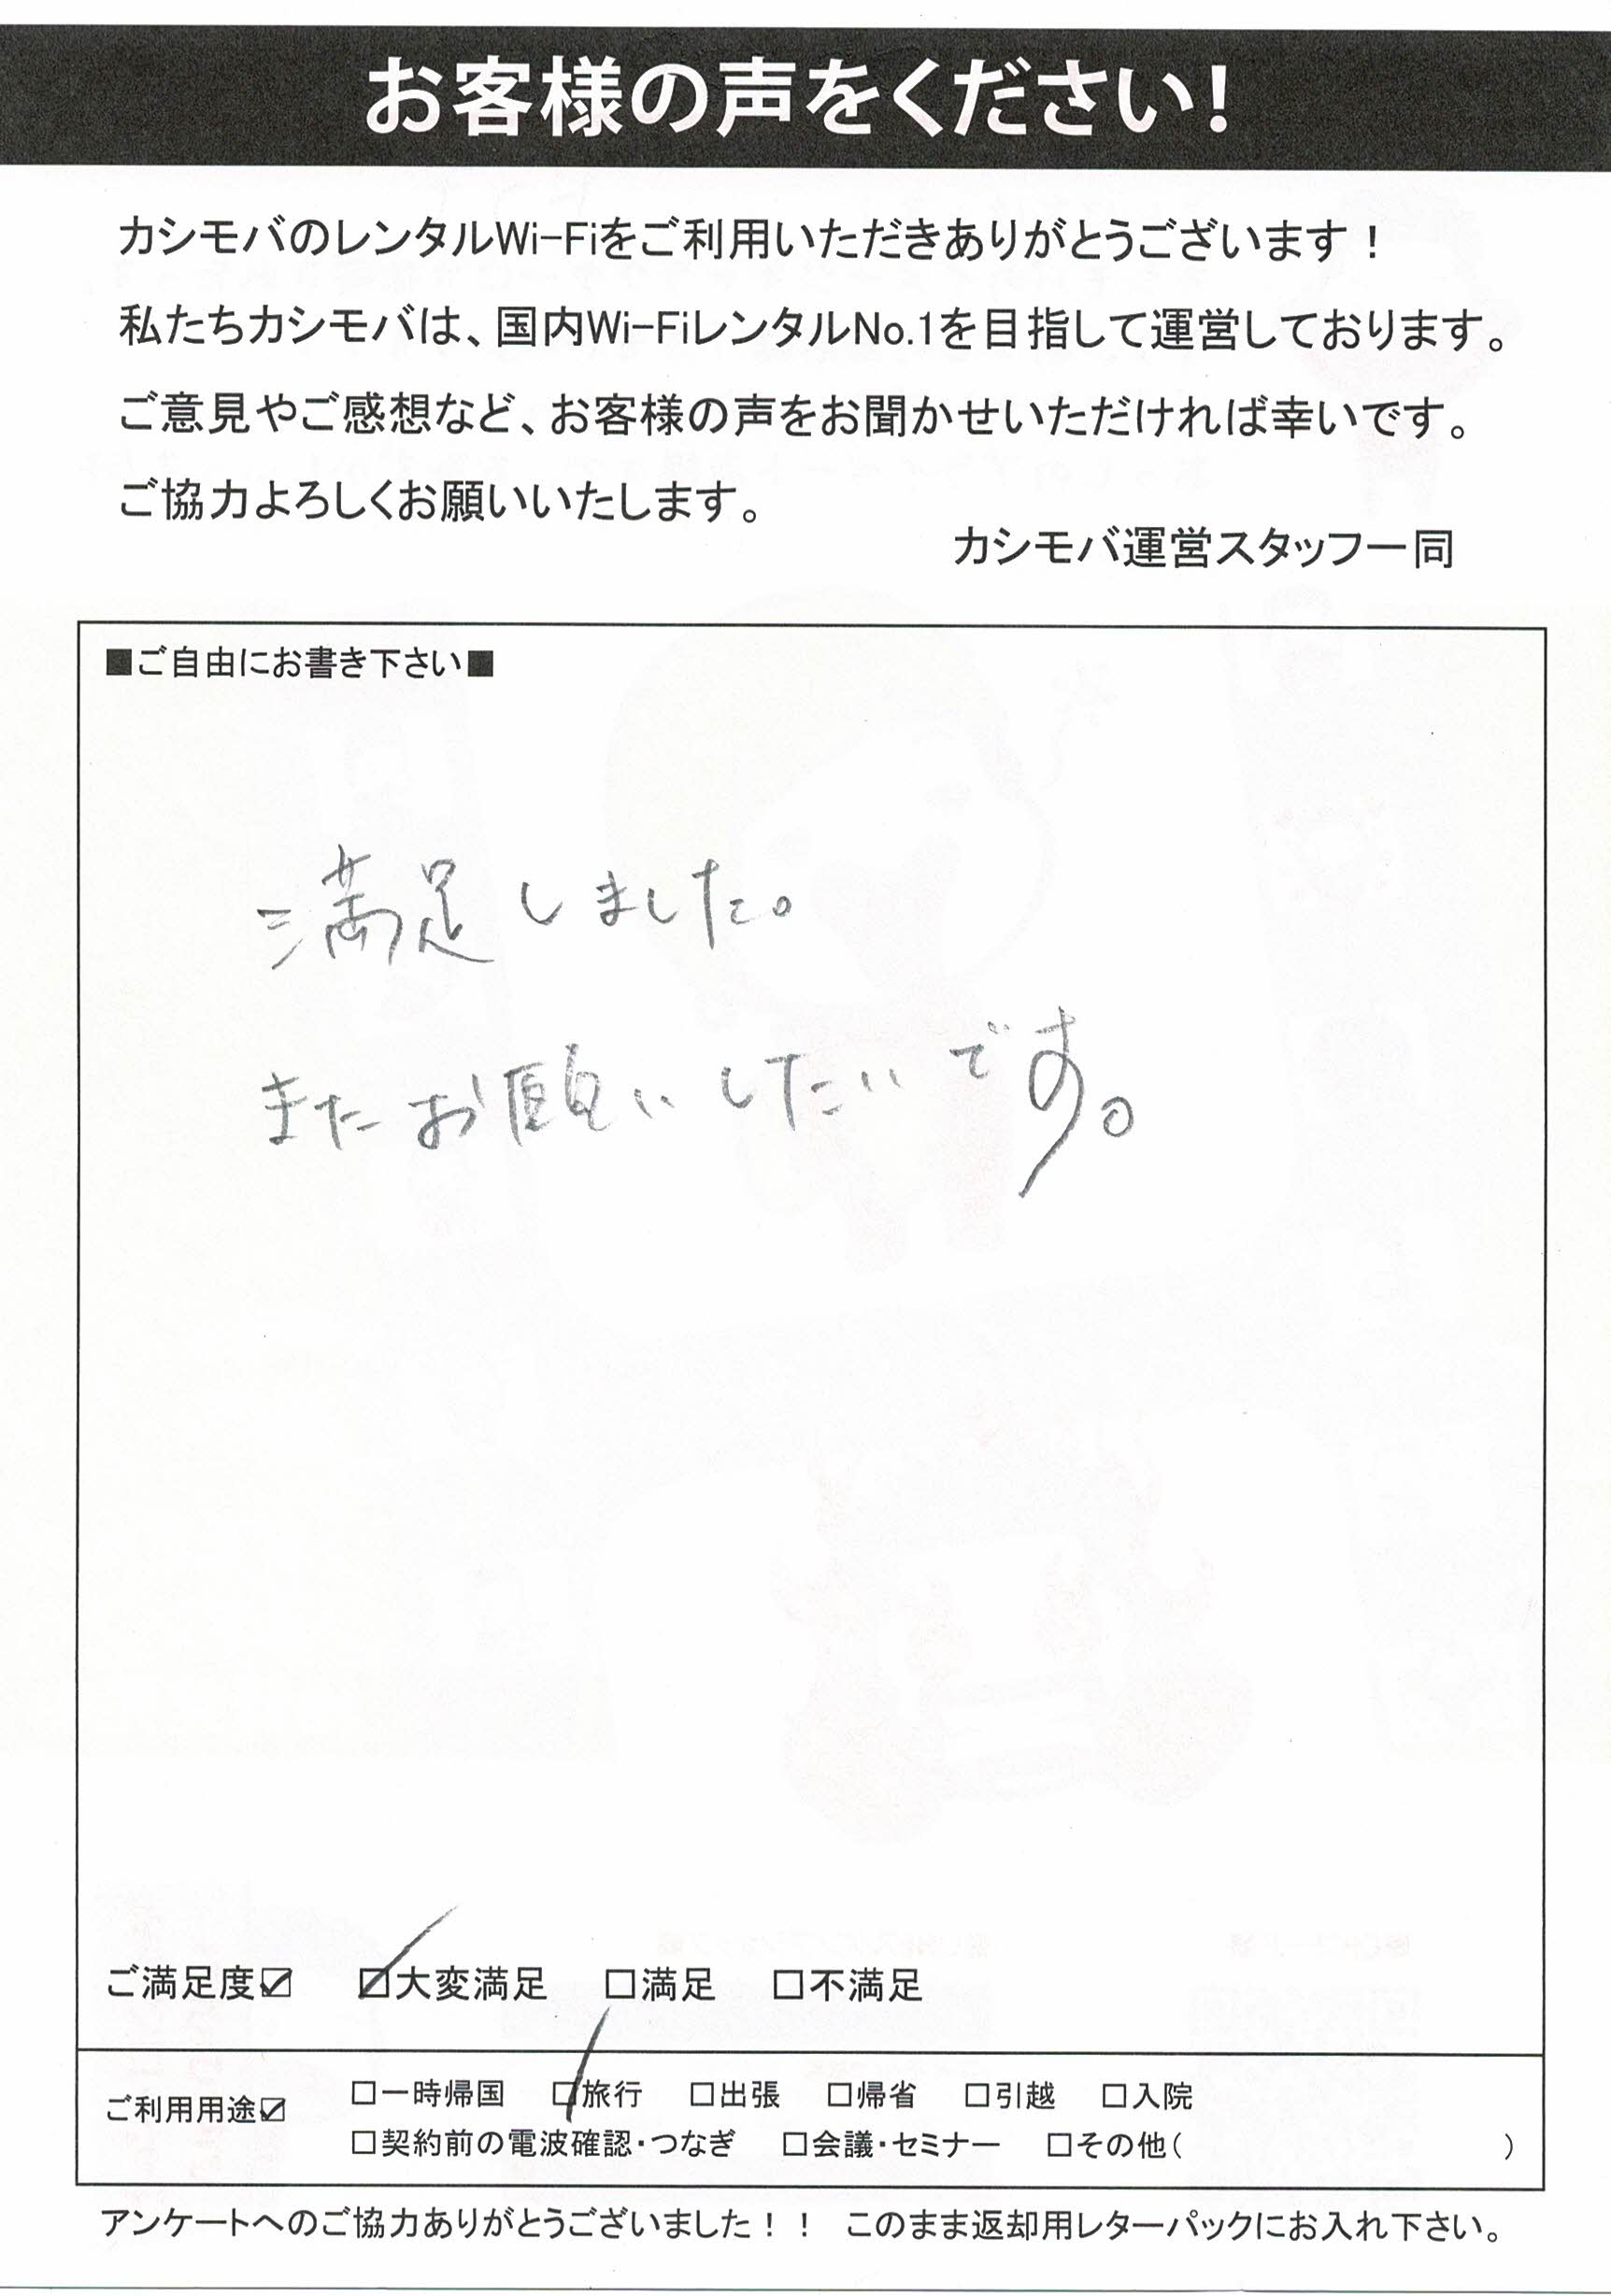 お客様の声をください!
カシモバのレンタルWi-Fiをご利用いただきありがとうございます！
私たちカシモバは、国内Wi-FiレンタルNo.1を目指して運営しております。
ご意見やご感想など、お客様の声をお聞かせいただければ幸いです。
ご協力よろしくお願いいたします。
カシモバ運営スタッフ一同
■ご自由にお書き下さい■
満足しました。
またお願いしたいです。
ご満足度☑ ☑大変満足 □満足 □不満足
ご利用用途☑ □一時帰国 ☑旅行 □出張 □帰省 □引越 □入院
□契約前の電波確認・つなぎ □会議・セミナー □その他( )
アンケートへのご協力ありがとうございました！！ このまま返却用レターパックにお入れ下さい。